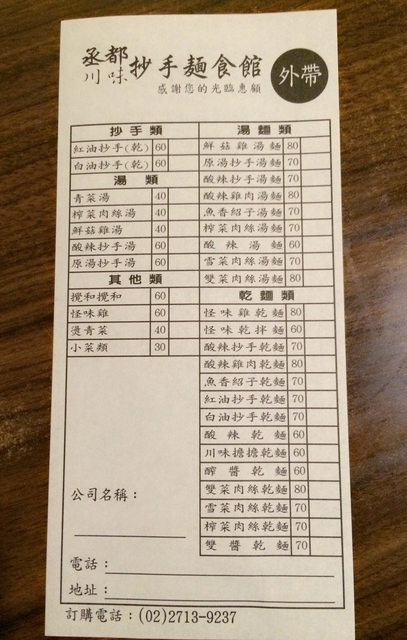 丞都
川味
抄手麵食館
外帶
感謝您的光臨惠顧
抄手類
紅油抄手(乾) 60
白油抄手(乾) 60
湯類
青菜湯 40
榨菜肉絲湯 40
鮮菇雞湯 40
酸辣抄手湯 60
原湯抄手湯 60
其他類
攪和攪和 60
怪味雞 60
燙青菜 40
小菜類 30
湯麵類
鮮菇雞湯麵 80
原湯抄手湯麵 70
酸辣抄手湯麵 70
酸辣雞肉湯麵 80
魚香紹子湯麵 70
榨菜肉絲湯麵 70
酸辣湯麵 60
雪菜肉絲湯麵 70
雙菜肉絲湯麵 80
乾麵類
怪味雞乾麵 80
怪味乾拌麵 60
酸辣抄手乾麵 70
酸辣雞肉乾麵 80
魚香紹子乾麵 70
紅油抄手乾麵 70
白油抄手乾麵 70
酸辣乾麵 60
川味擔擔乾麵 60
醡醬乾麵 60
雙菜肉絲乾麵 80
雪菜肉絲乾麵 70
榨菜肉絲乾麵 70
雙醬乾麵 70
公司名稱：
電話：
地址：
訂購電話：(02)2713-9237